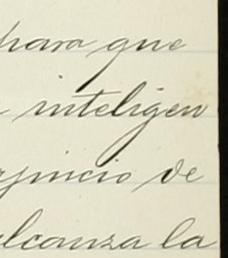 para que
inteligen
juicio de
alcanza la